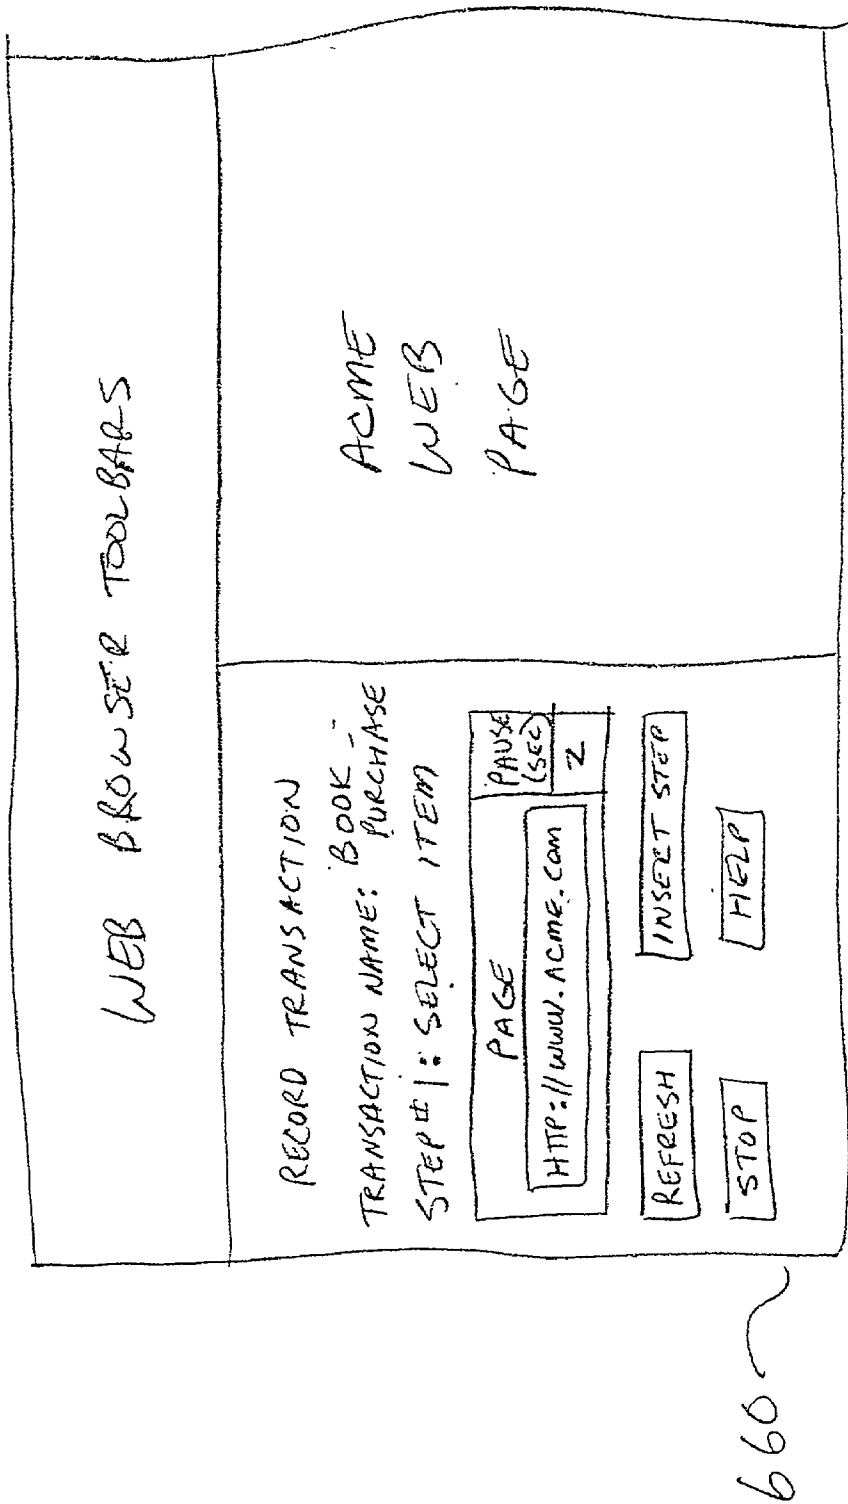 WEB BROWSER TOOLBARS
RECORD TRANSACTION
TRANSACTION NAME: BOOK-
PURCHASE
STEP #1: SELECT ITEM
PAGE
PAUSE
(SEC)
HTTP://WWW.ACME.COM
2
REFRESH
INSERT STEP
STOP
HELP
ACME
WEB
PAGE
660